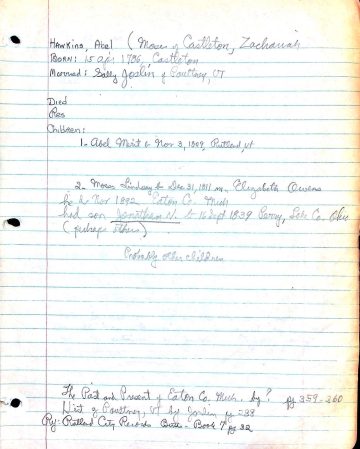 Hawkins, Abel (Moses of Castleton, Zachariah
Born: 15 apr 1786, Castleton
Married: Sally Joslin of Poultney, VT
Died
Res
Children:
1. Abel b Nov 3, 1809, Rutland, Vt
2. Moses Lindsey b Dec 31, 1811 m. Elizabeth Owens
he d Nov 1892 Eaton Co. Mich
had son Jonathan N. b 16 Sept 1839 Perry, Lake Co. Ohio
(perhaps others)
Probably other children
The Past and Present of Eaton Co. Mich. by? pg 359-360
Hist of Poultney, Vt by Joslin pg 288
Ry: Rutland City Records Book 7 pg 32